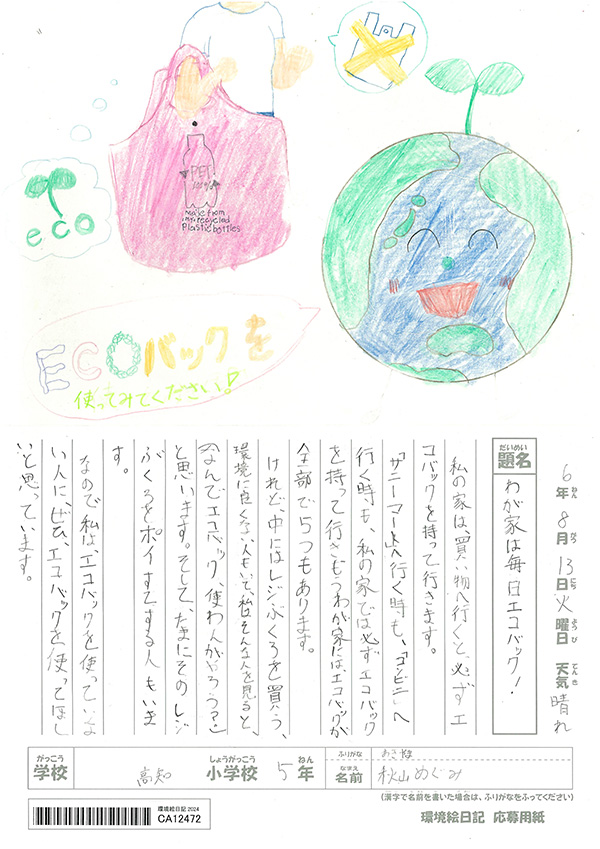 eco
PET
100%
Made from
recycled
Plastic bottles
ECOバックを
使ってみてください!
6年 8月 13日 火曜日 天気 晴れ
ねん がつ にち ようび てんき
だいめい
題名
わが家は毎日エコバック!
私の家は、買い物へ行くと、必ずエ
コバックを持って行きます。
「サニーマート」へ行く時も、「コンビニ」へ
行く時も、私の家では必ずエコバック
を持って行きもうわが家には、エコバックが
全部で5つもあります。
けれど、中にはレジぶくろを買う、
環境に良くない人もいて、私はそんな人を見ると、
(なんでエコバック、使わんがやろう?)
と思います。そして、たまにそのレジ
ぶくろをポイすてする人もいま
す。
なので私は、エコバックを使っていな
い人に、ぜひ、エコバックを使ってほし
いと思っています。
がっこう
学校
高知
しょうがっこう
小学校
5
ねん
年
ふりがな
あきやま
なまえ
名前
秋山めぐみ
(漢字で名前を書いた場合は、ふりがなをふってください)
環境絵日記 2024
CA12472
環境絵日記 応募用紙